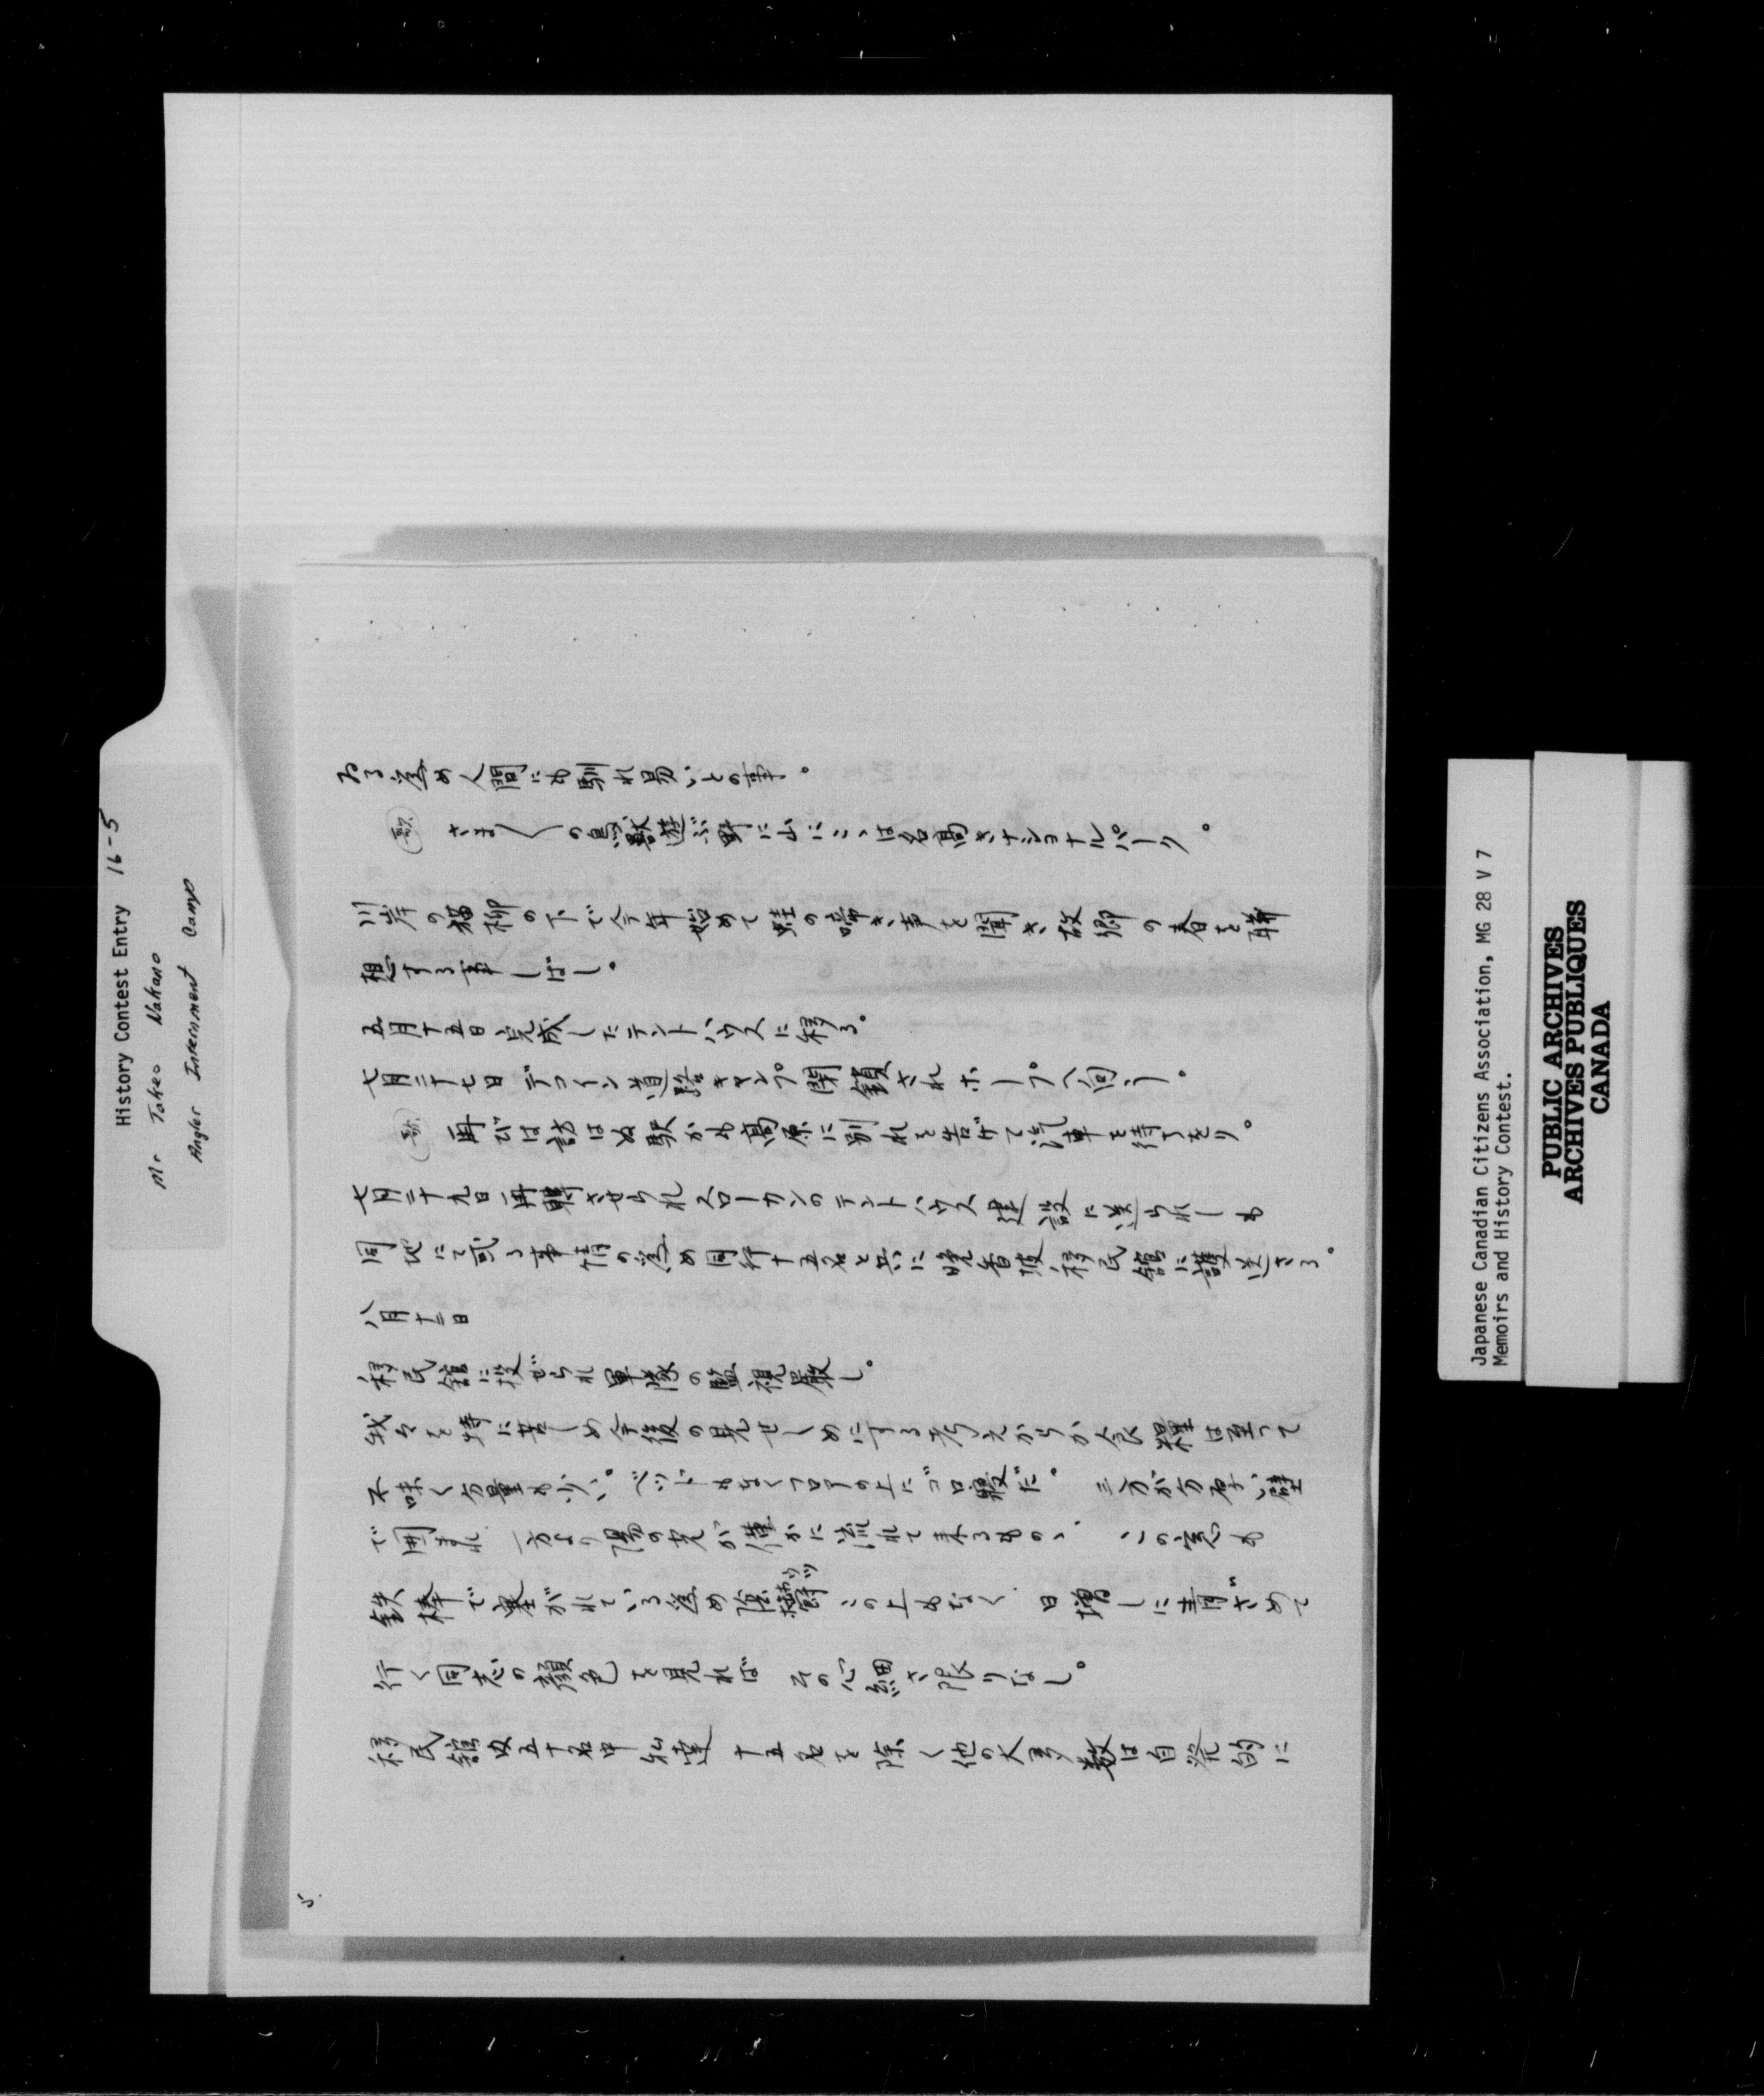 History Contest Entry 16-5
Mr Takeo Nakano
Angler Internment Camp
ゐる為め人間にも馴れ易いとの事。
(歌) さま〲の鳥獣遊ぶ野に山にここは名高きナショナルパーク。
川岸の猫柳の下で今年始めて蛙の啼き声を聞き、故郷の春を聯
想する事しばし。
五月十五日完成したテントハウスに移る。
七月二十七日 デコイン道路キャンプ閉鎖されホープへ向う。
(歌) 再びは訪はぬ駅かも高原に別れを告げて汽車を待ちをり。
七月二十九日再転させられスローカンのテントハウス建設に送られしも
同地にて或る事情の為め同行十五名と共に晩香坡移民館に護送さる。
八月十三日
移民館に投ぜられ軍隊の監視厳し。
我々を特に苦しめ今後の見せしめにする考えからか食糧は至って
不味く分量も少い。ベットもなくフロアの上にゴロ寝だ。三方が分厚い壁
で囲まれ 一方より陽の光が僅かに流れて来るものゝ、この窓も
鉄棒で塞がれている為め陰鬱ウツこの上もなく、日増しに青ざめて
行く同志の顔色を見れば その心細さ限りなし。
移民館収五十名中 私達 十五名を除く他の大多数は自発的に
5.
Japanese Canadian Citizens Association, MG 28 V 7
Memoirs and History Contest.
PUBLIC ARCHIVES
ARCHIVES PUBLIQUES
CANADA